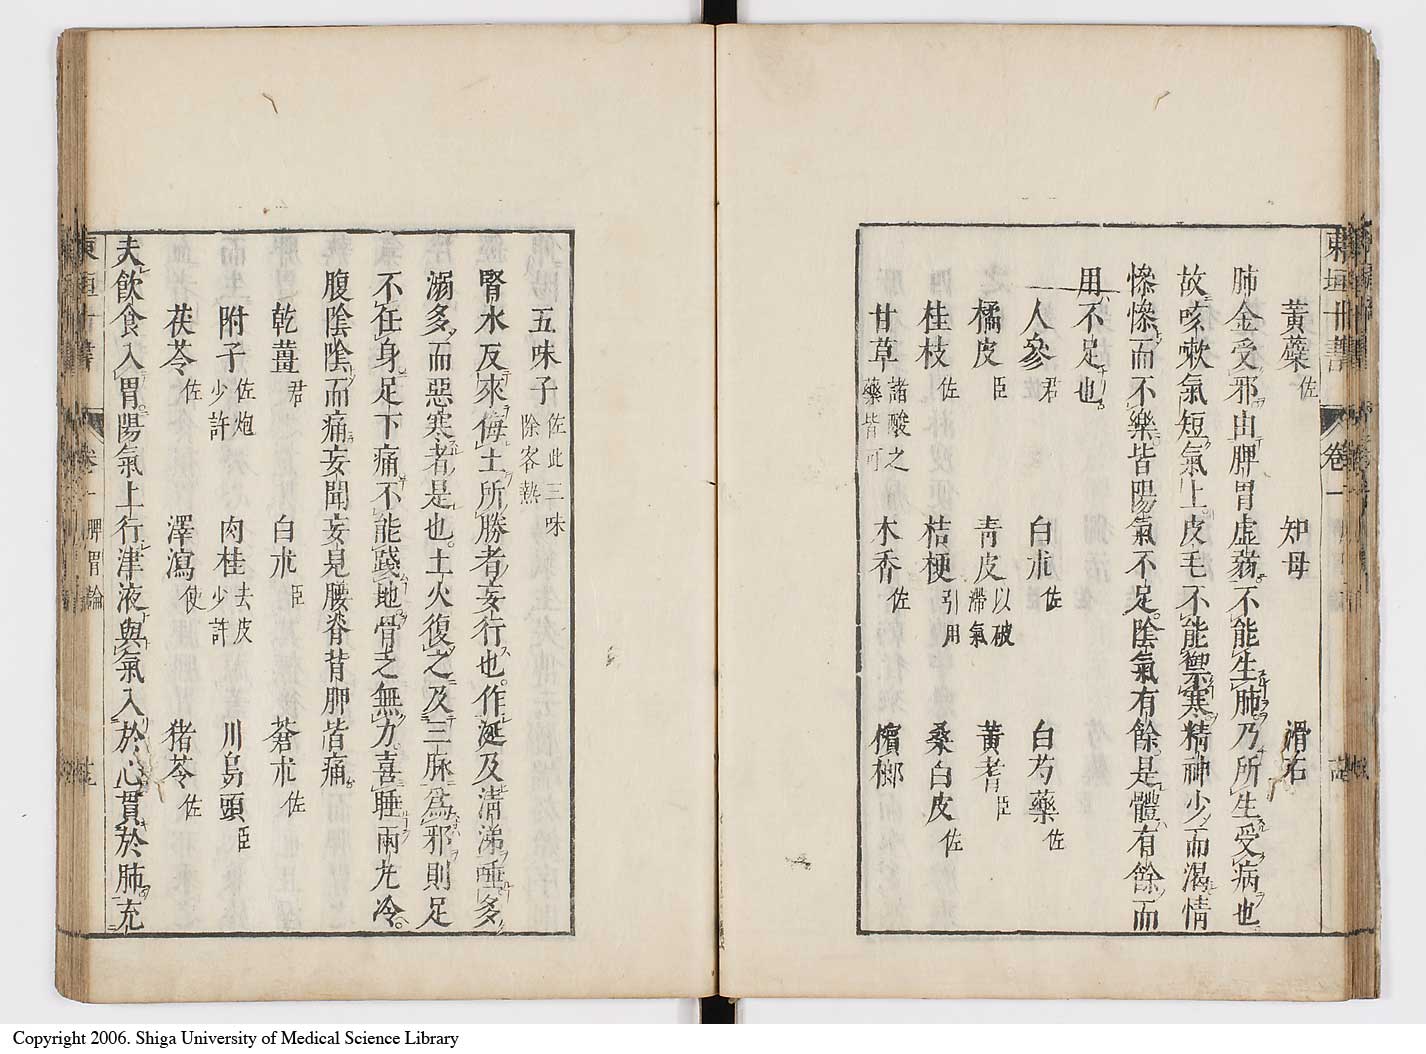 黃蘗佐　知母　滑石
肺金受邪由脾胃虛弱不能生肺乃所生受病也
故咳嗽氣短氣上皮毛不能禦寒精神少而渴情
慘慘而不樂皆陽氣不足陰氣有餘是體有餘而
用不足也
人參君　白朮佐　白芍藥佐
橘皮臣　青皮以破滯氣　黃耆臣
桂枝佐　桔梗引用　桑白皮佐
甘草諸酸之藥皆可　木香佐　檳榔
東垣十書　卷一
五味子佐此三味除客熱
腎水反來侮土所勝者妄行也作涎及清涕唾多
溺多而惡寒者是也土火復之及三脉爲邪則足
不任身足下痛不能踐地骨之無力喜睡兩尤冷
腹陰陰而痛妄聞妄見腰脊背胛皆痛
乾薑君　白朮臣　蒼朮佐
附子佐炮少許　肉桂去皮少許　川烏頭臣
茯苓佐　澤瀉使　猪苓佐
夫飲食入胃陽氣上行津液與氣入於心貫於肺充
東垣十書　卷一　脾胃論
Copyright 2006. Shiga University of Medical Science Library